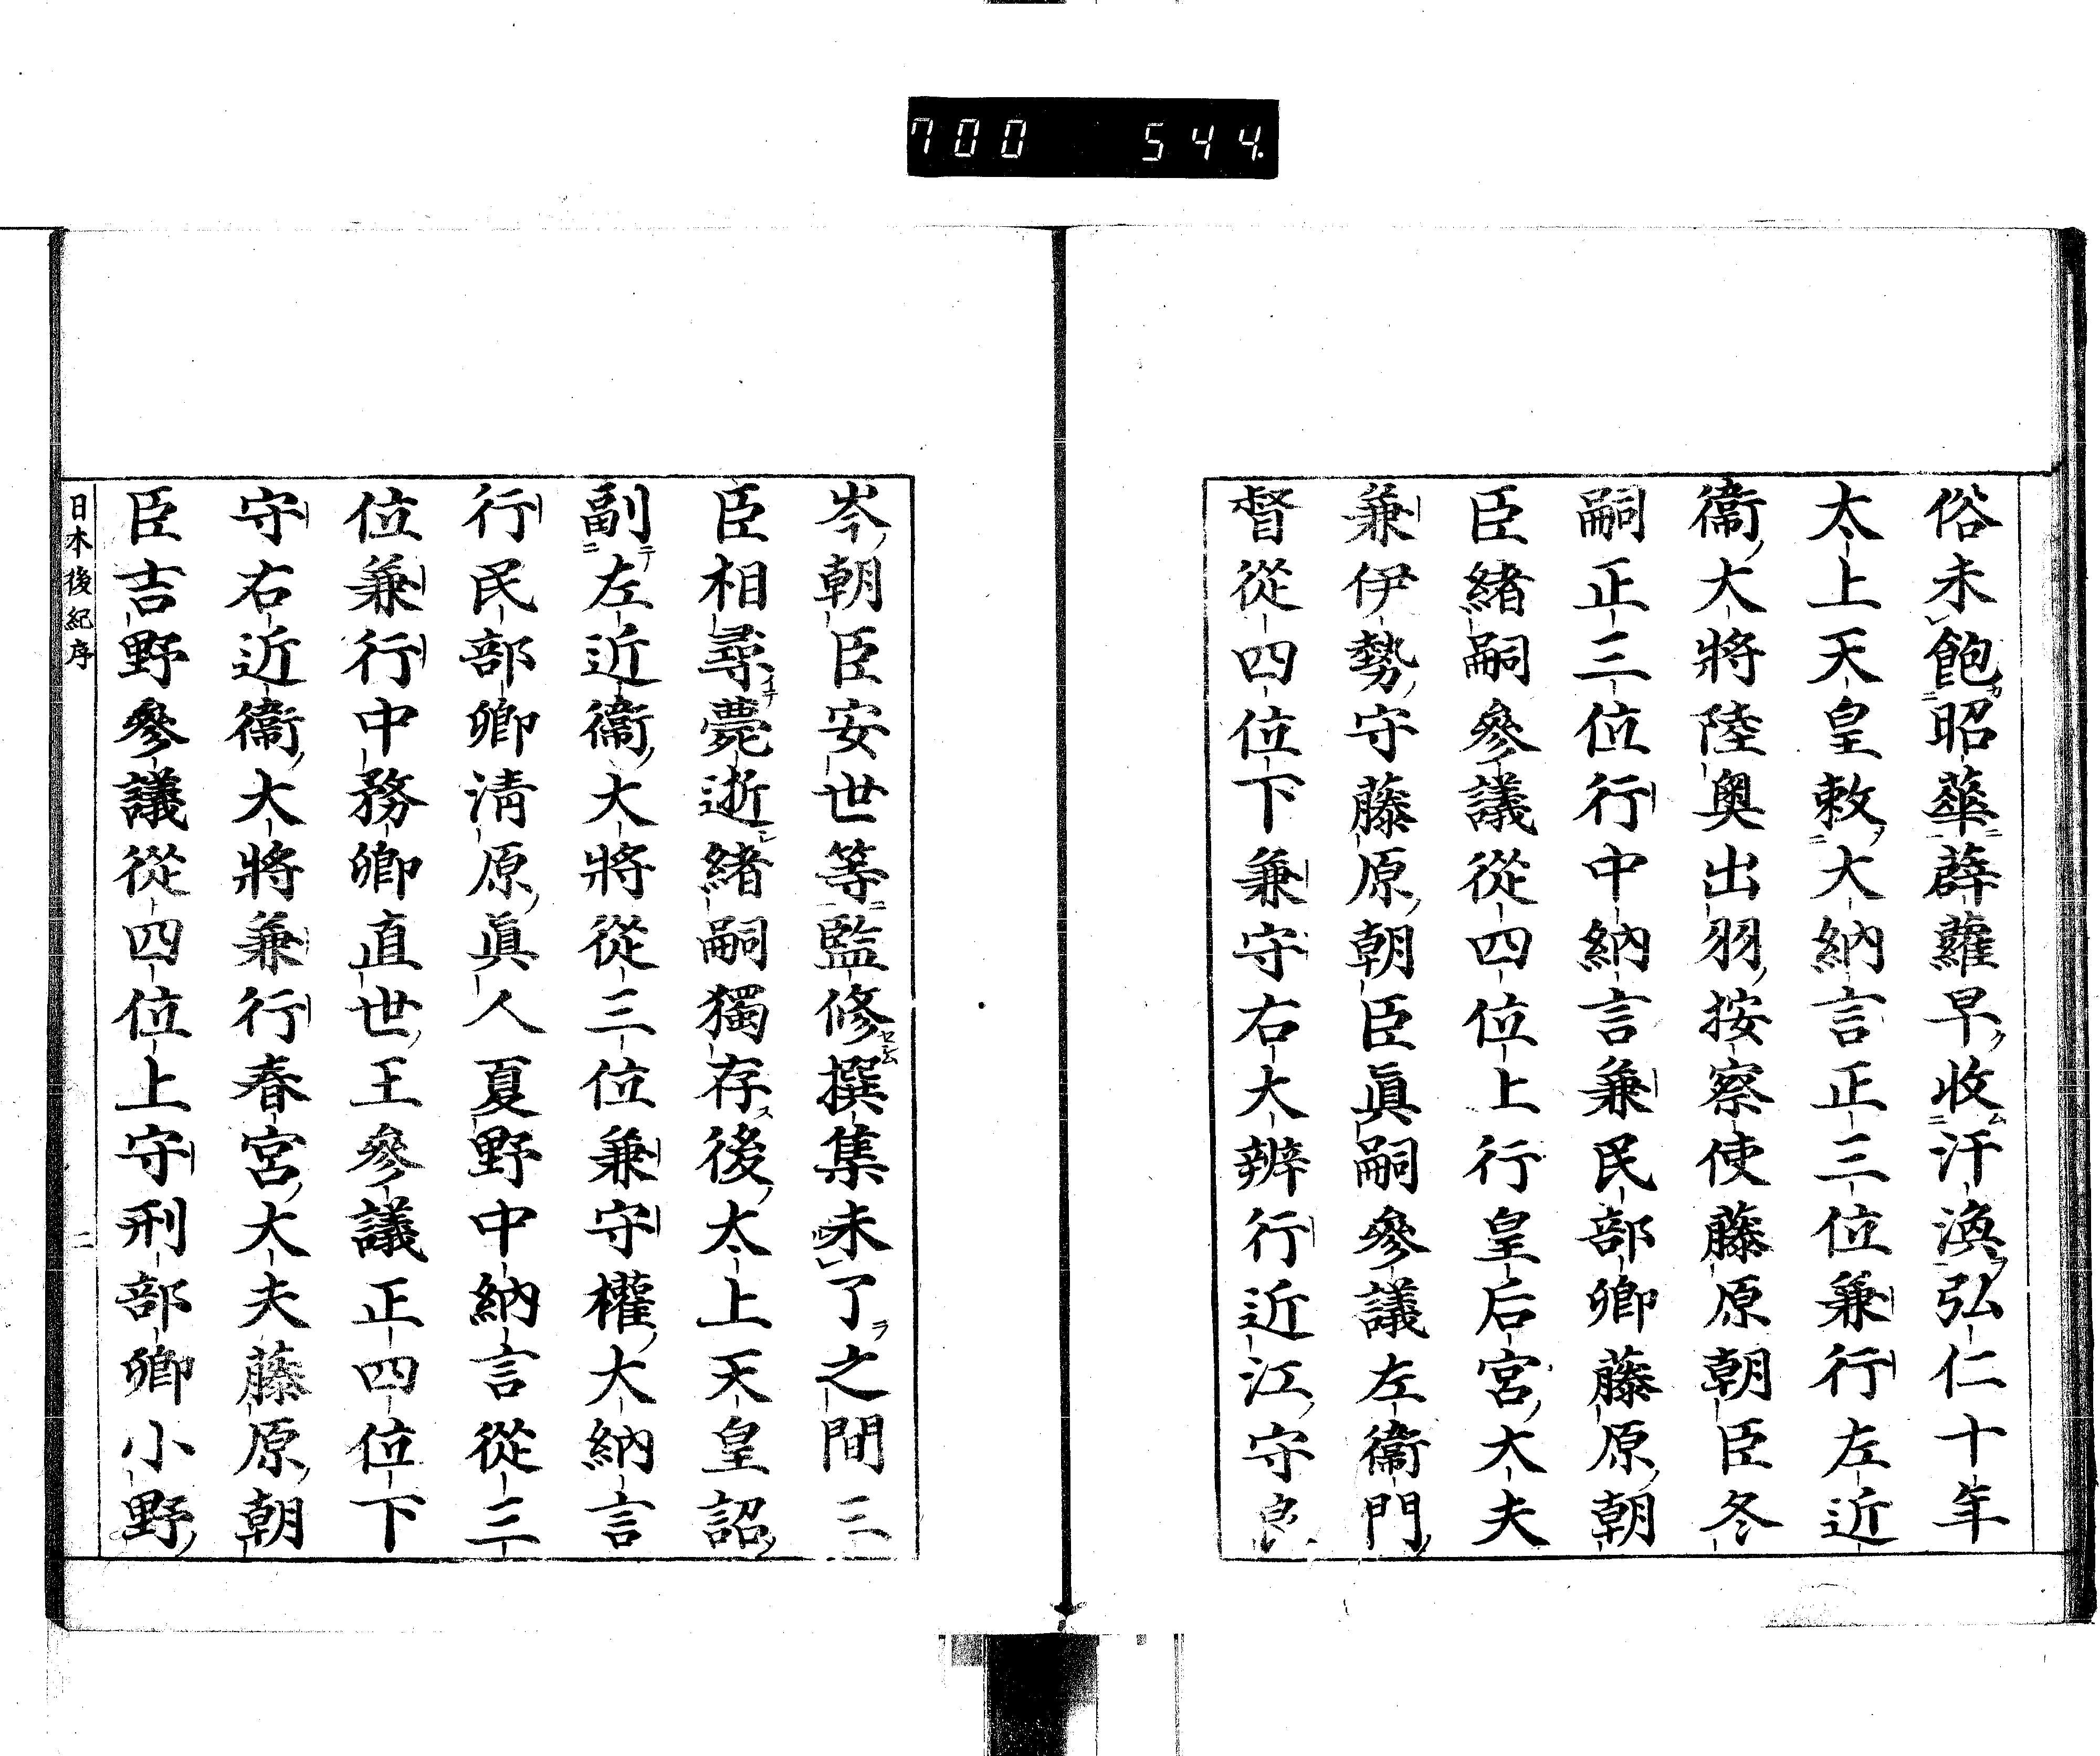 700 544.
俗未飽昭華薜蘿早收汗渙弘仁十年
太上天皇敕大納言正三位兼行左近
衞大將陸奥出羽按察使藤原朝臣冬
嗣正三位行中納言兼民部卿藤原朝
臣緒嗣參議從四位上行皇后宮大夫
兼伊勢守藤原朝臣眞嗣參議左衞門
督從四位下兼守右大辨行近江守良
岑朝臣安世等監修撰集未了之間三
臣相尋薨逝緒嗣獨存後太上天皇詔
副左近衞大將從三位兼守權大納言
行民部卿清原眞人夏野中納言從三
位兼行中務卿直世王參議正四位下
守右近衞大將兼行春宮大夫藤原朝
臣吉野參議從四位上守刑部卿小野
日本後紀序 二